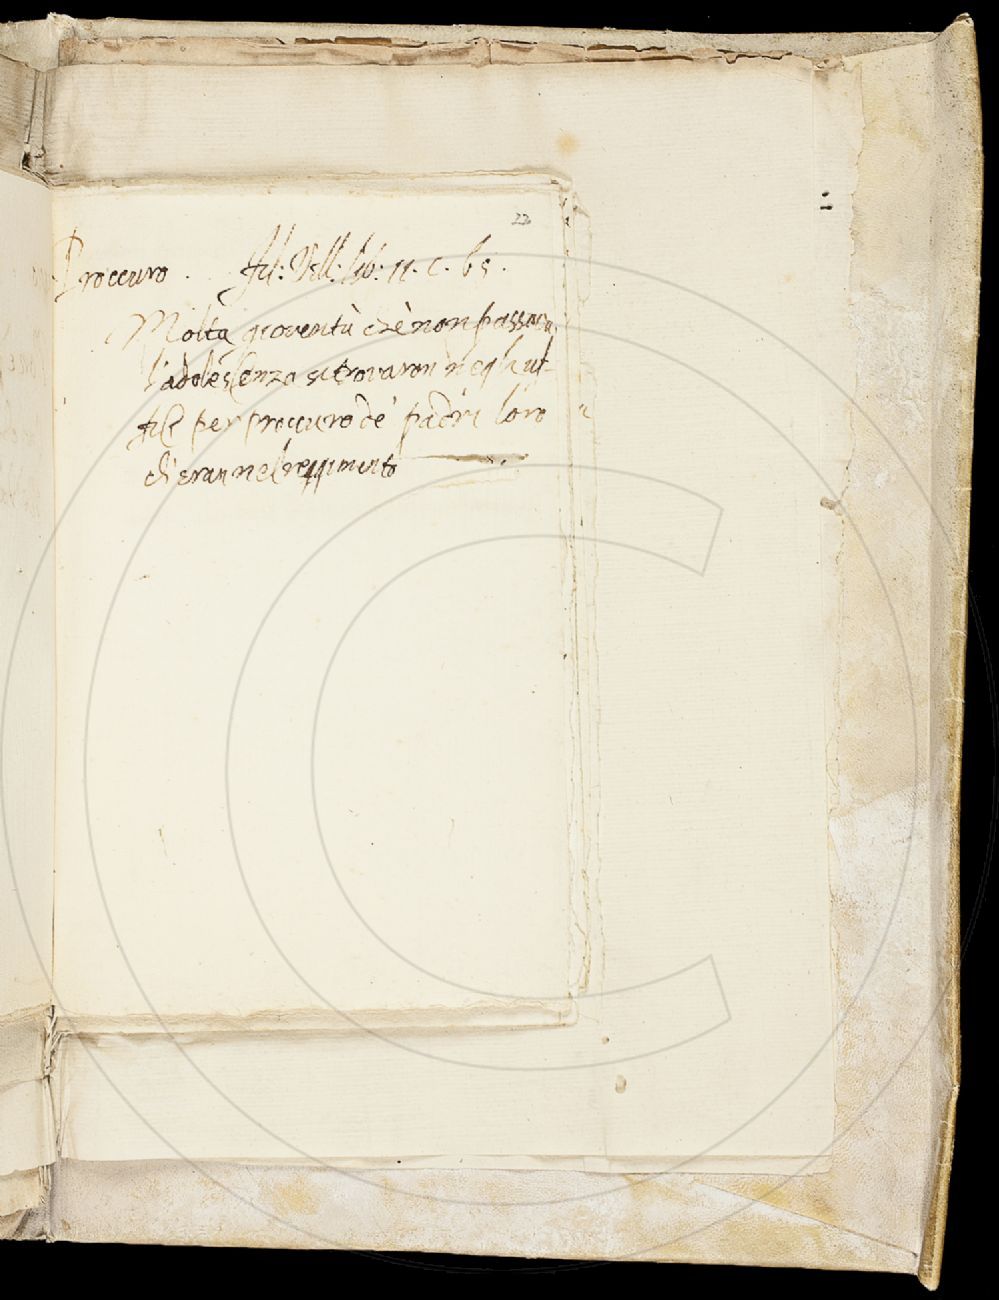 22
Proccuro. Fil: Vill: lib: 11. c. 65.
Molta gioventù che non passava
l'adolescenza si trovaron negli uf-
fici per proccuro de' padri loro
ch'eran nel reggimento